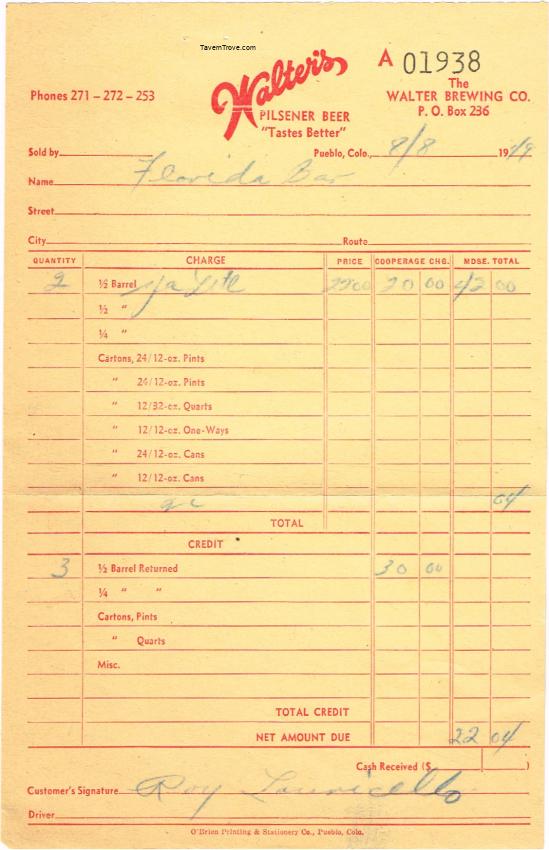 TavernTrove.com
Walter's
A 01938
Phones 271 – 272 – 253
PILSENER BEER
"Tastes Better"
The
WALTER BREWING CO.
P. O. Box 236
Sold by Pueblo, Colo., 8/8 1949
Name Florida Bar
Street
City Route
QUANTITY CHARGE PRICE COOPERAGE CHG. MDSE. TOTAL
2 ½ Barrel 2200 20 00 42 00
½ "
¼ "
Cartons, 24/12-oz. Pints
" 24/12-oz. Pints
" 12/32-oz. Quarts
" 12/12-oz. One-Ways
" 24/12-oz. Cans
" 12/12-oz. Cans
04
TOTAL
CREDIT
3 ½ Barrel Returned 30 00
¼ " "
Cartons, Pints
" Quarts
Misc.
TOTAL CREDIT
NET AMOUNT DUE 22 04
Cash Received ($ )
Customer's Signature Roy Lauricello
Driver
O'Brien Printing & Stationery Co., Pueblo, Colo.